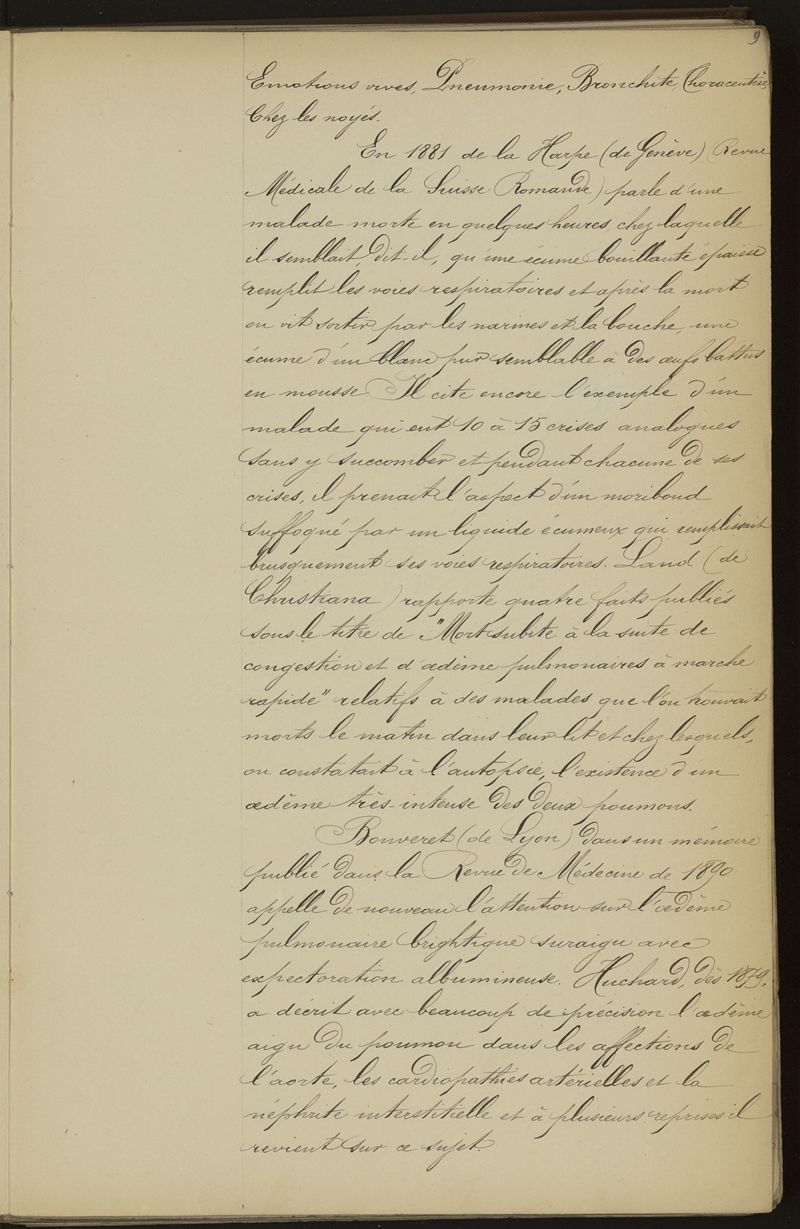 9
Emotions vives, Pneumonie, Bronchite, Thoracentèse
Chez les noyés.
En 1881 de la Harpe (de Genève) (Revue
Médicale de la Suisse Romande) parle d'une
malade morte en quelques heures chez laquelle
il semblait, dit il, qu'une écume bouillante épaisse
remplit les voies respiratoires et après la mort
on vit sortir par les narines et la bouche, une
écume d'un blanc pur semblable à des œufs battus
en mousse. Il cite encore l'exemple d'un
malade qui eut 10 à 15 crises analogues
sans y succomber et pendant chacune de ses
crises, il prenait l'aspect d'un moribond
suffoqué par un liquide écumeux qui remplissait
brusquement ses voies respiratoires. Land (de
Christiana) rapporte quatre faits publiés
sous le titre de "Mort subite à la suite de
congestion et d'œdème pulmonaires à marche
rapide" relatifs à des malades que l'on trouvait
morts le matin dans leur lit et chez lesquels,
on constatait à l'autopsie, l'existence d'un
œdème très-intense des deux poumons.
Bouveret (de Lyon) dans un mémoire
publié dans la Revue de Médecine de 1890
appelle de nouveau l'attention sur l'œdème
pulmonaire brightique suraigu avec
expectoration albumineuse. Huchard, dès 1879,
a décrit avec beaucoup de précision l'œdème
aigu du poumon dans les affections de
l'aorte, les cardiopathies artérielles et la
néphrite interstitielle et à plusieurs reprises il
revient sur ce sujet.